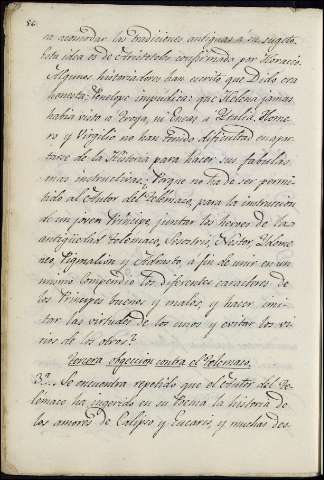 86.
ra acomodar las tradiciones antiguas à su sugeto.
Esta idea es de Aristoteles confirmada por Horacio.
Algunos historiadores han escrito que Dido era
honesta; Penelope impudica: que Helena jamas
habia visto a Troya, ni Eneas a Italia. Home
ro y Virgilio no han tenido dificultad en apar
tarse de la Historia para hacer sus fabulas
mas instructivas; Porque no ha de ser permi
tido al Autor del Telemaco, para la instruccion
de un joven Principe, juntar los heroes de la
antigüedad Telemaco, Sesostris, Nestor, Ydome
neo, Pigmalion y Adrasto, a fin de unir en un
mismo compendio los diferentes caracteres de
los Principes buenos y malos, y hacer imi
tar las virtudes de los unos y evitar los vi
cios de los otros?
Tercera objeccion contra el Telemaco.
3.a Se encuentra repetido que el Autor del Te
lemaco ha ingerido en su Poema la historia de
los amores de Calipso y Eucaris, y muchas des